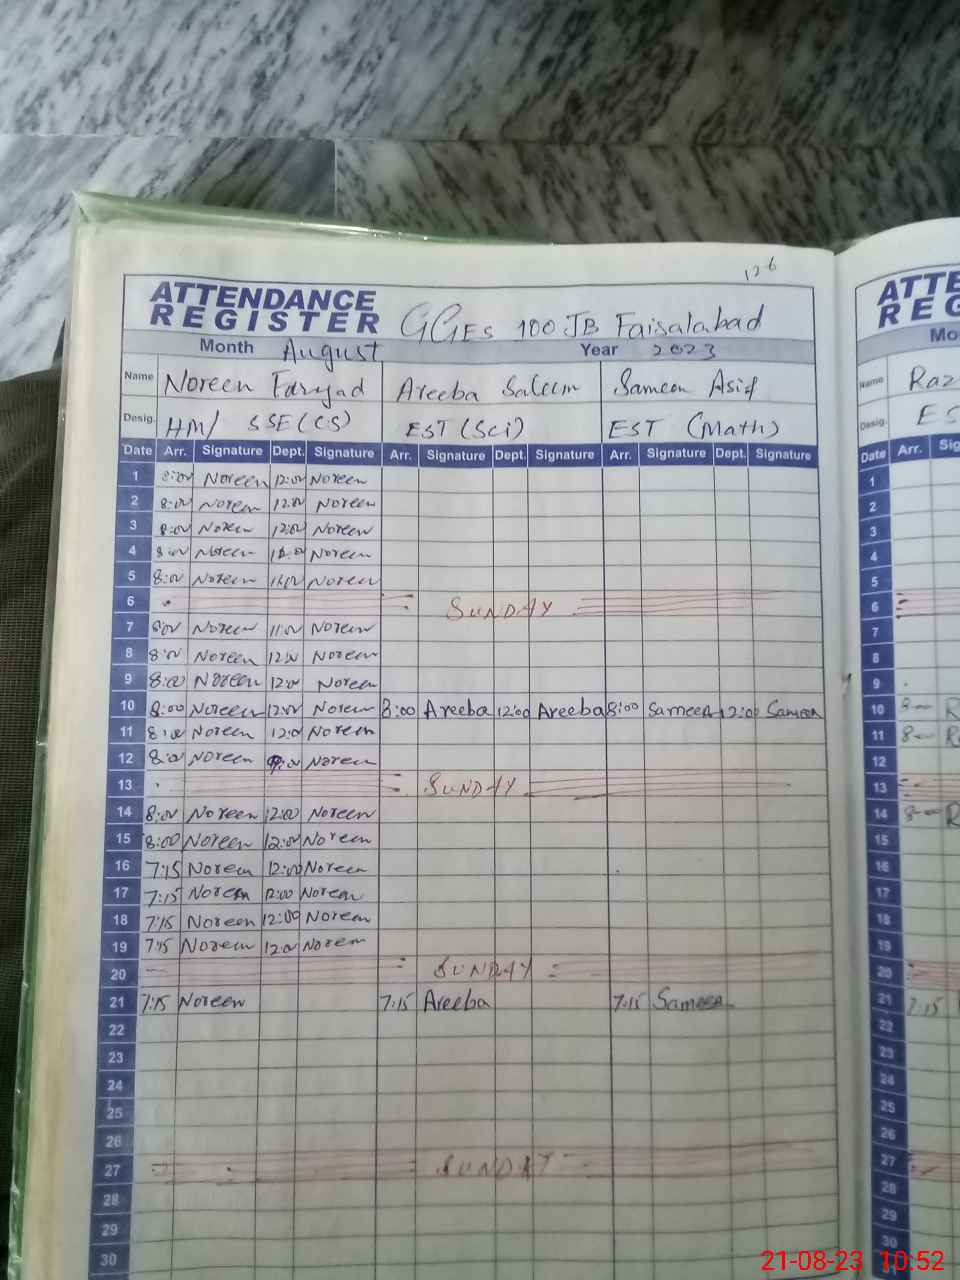 126
ATTENDANCE
REGISTER GGES 100 JB Faisalabad
Month August Year 2023
Name Noreen Faryad Areeba Saleem Sameen Asif
Desig. HM/ SSE (CS) EST (Sci) EST (Math)
Date Arr. Signature Dept. Signature Arr. Signature Dept. Signature Arr. Signature Dept. Signature
1 8:00 Noreen 12:00 Noreen
2 8:00 Noreen 12:00 Noreen
3 8:00 Noreen 12:00 Noreen
4 8:00 Noreen Noreen
5 8:00 Noreen Noreen
6 SUNDAY
7 8:00 Noreen 11:00 Noreen
8 8:00 Noreen 12:00 Noreen
9 8:00 Noreen 12:00 Noreen
10 8:00 Noreen 12:00 Noreen 8:00 Areeba 12:00 Areeba 8:00 Sameen 12:00 Sameen
11 8:00 Noreen 12:00 Noreen
12 8:00 Noreen Noreen
13 SUNDAY
14 8:00 Noreen 12:00 Noreen
15 8:00 Noreen 12:00 Noreen
16 7:15 Noreen 12:00 Noreen
17 7:15 Noreen 12:00 Noreen
18 7:15 Noreen 12:00 Noreen
19 7:15 Noreen 12:00 Noreen
20 SUNDAY
21 7:15 Noreen 7:15 Areeba 7:15 Sameen
22
23
24
25
26
27 SUNDAY
28
29
30
Name Raz
Desig. ES
Date Arr.
1
2
3
4
5
6
7
8
9
10 8-00 R
11 8-00 R
12
13
14 8-00 R
15
16
17
18
19
20
21 7:15
22
23
24
25
26
27
28
29
30
21-08-23 10:52